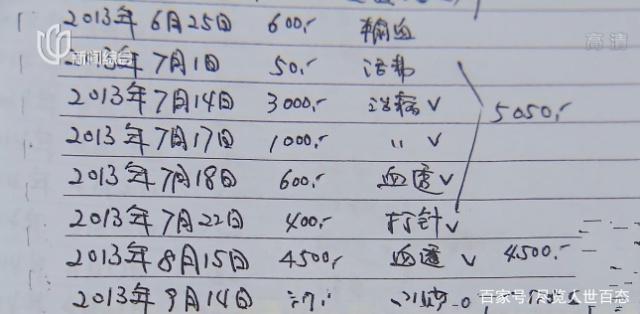 2013年6月25日 600.- 输血
高清
新闻综合
2013年7月1日 50.- 活
2013年7月14日 3000.- 治病 ✓ 5050.-
2013年7月17日 1000.- 〃 ✓
2013年7月18日 600.- 血透 ✓
2013年7月22日 400.- 打针 ✓
2013年8月15日 4500.- 血透 ✓ 4500.-
2013年9月14日
百家号/尽览人世百态